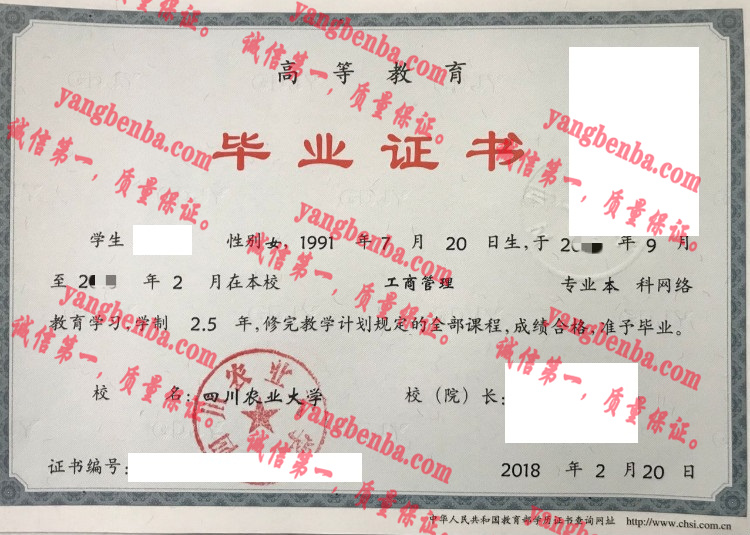 高等教育
毕业证书
学生 性别女，1991 年 7 月 20 日生，于 20 年 9 月
至 2 年 2 月在本校 工商管理 专业本 科网络
教育学习，学制 2.5 年，修完教学计划规定的全部课程，成绩合格，准予毕业。
校 名：四川农业大学 校（院）长：
四川农业大学
证书编号：
2018 年 2 月 20 日
中华人民共和国教育部学历证书查询网址 http://www.chsi.com.cn
yangbenba.com
诚信第一，质量保证。
yangbenba.com
诚信第一，质量保证。
yangbenba.com
诚信第一，质量保证。
yangbenba.com
诚信第一，质量保证。
yangbenba.com
诚信第一，质量保证。
yangbenba.com
诚信第一，质量保证。
yangbenba.com
诚信第一，质量保证。